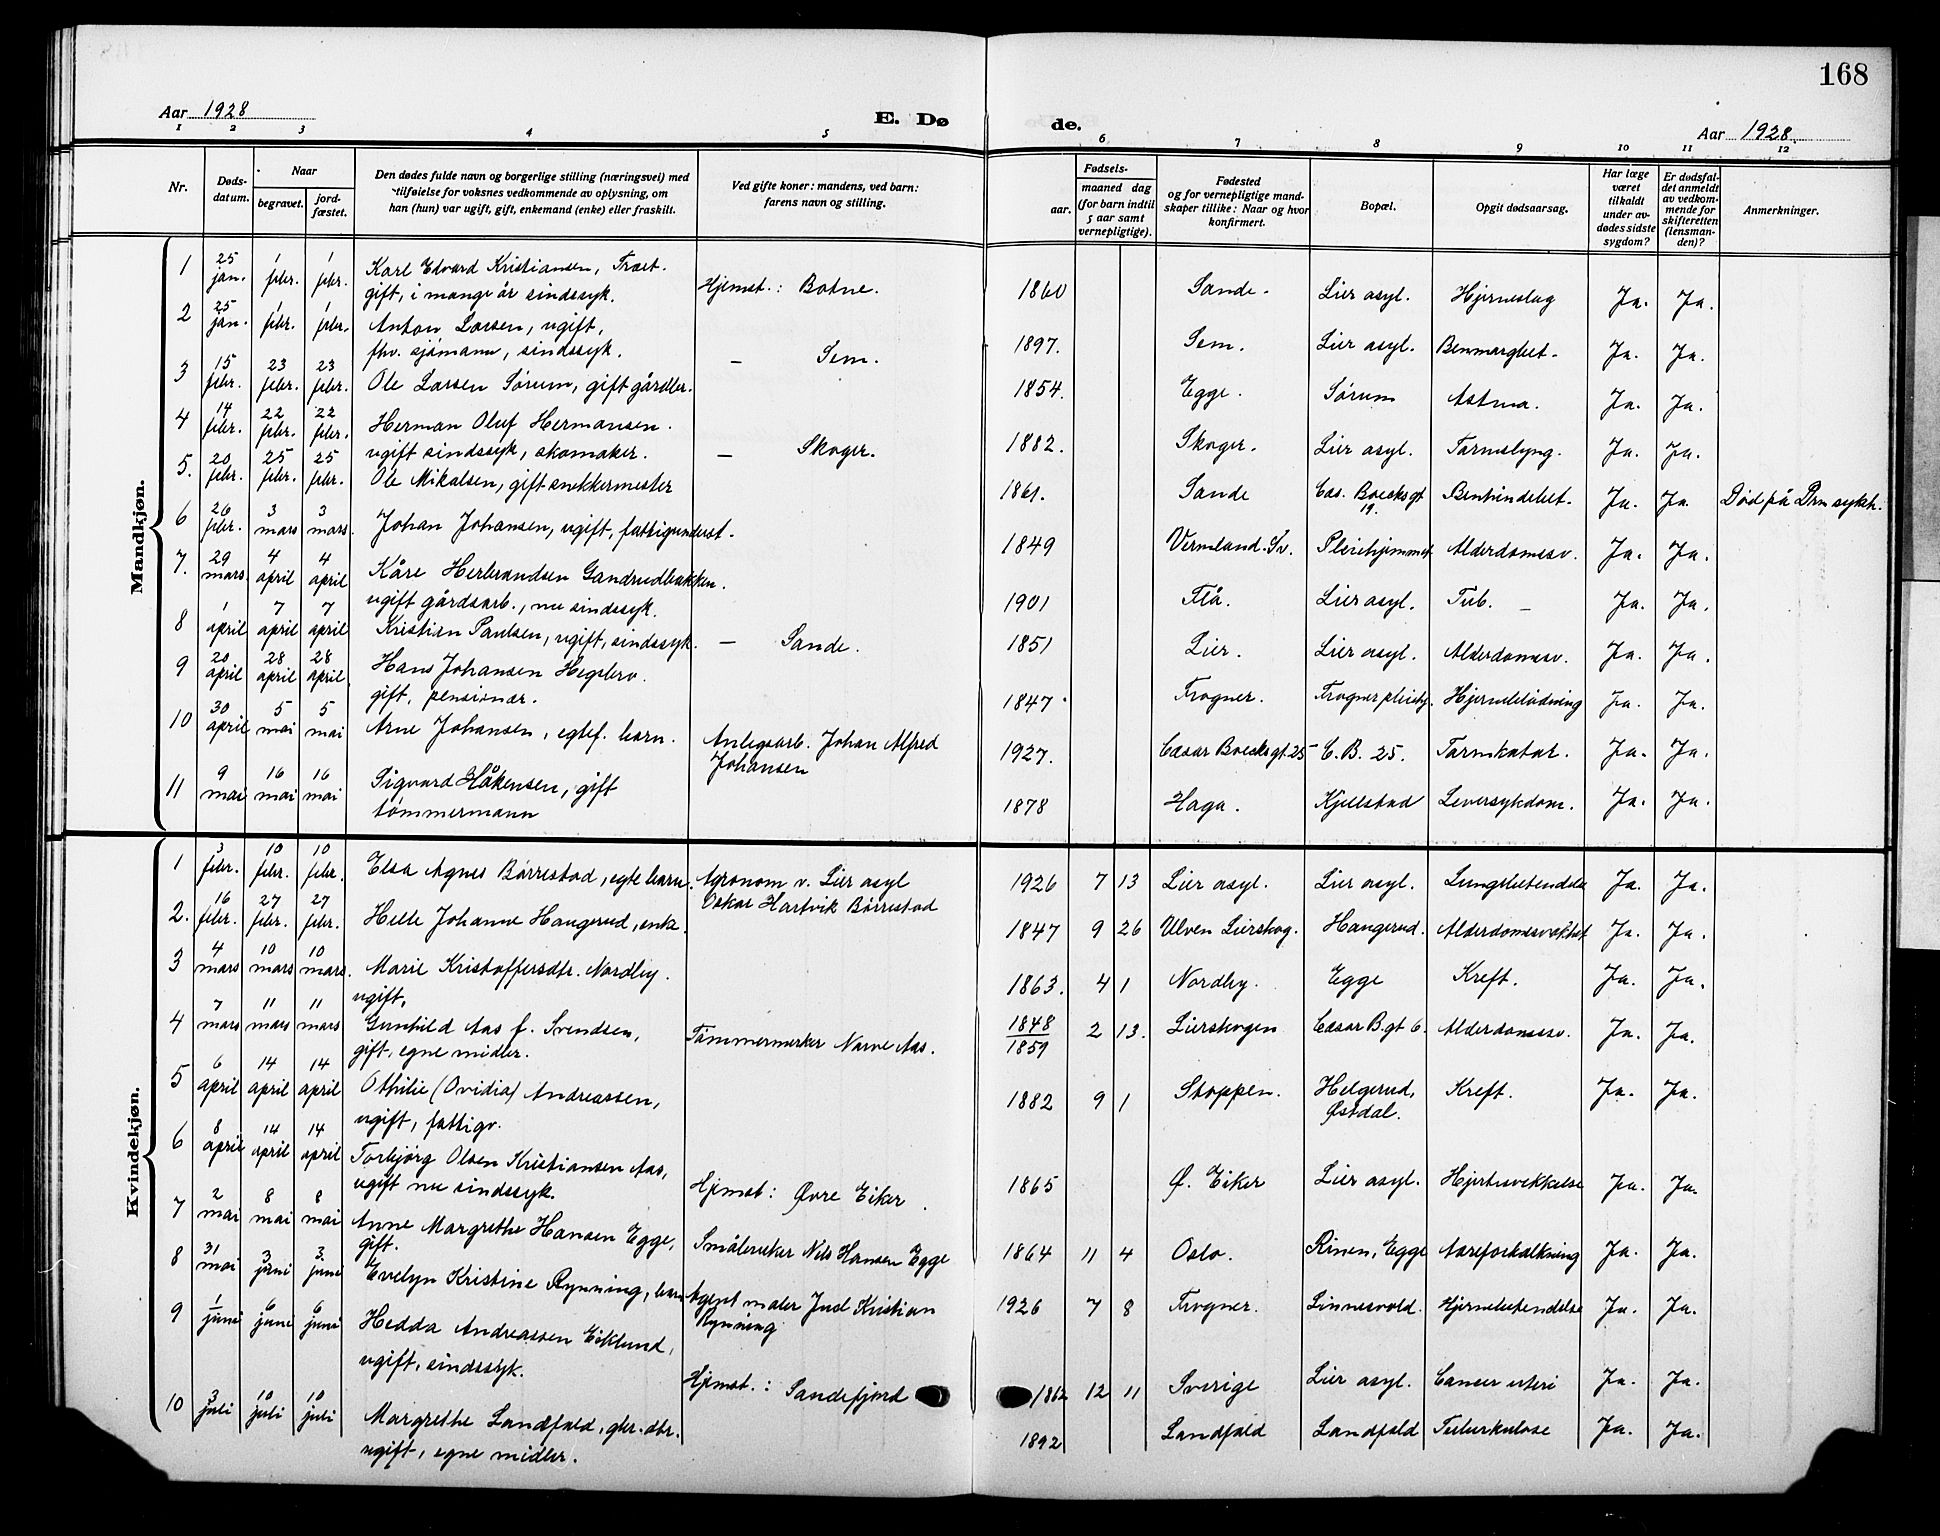 168
Aar 1928
E. Dø
de.
Aar 1928
1 2 3 4 5 6 7 8 9 10 11 12
Nr.
Dødsdatum.
Naar
begravet.
jordfæstet.
Den dødes fulde navn og borgerlige stilling (næringsvei) med
tilføielse for voksnes vedkommende av oplysning, om
han (hun) var ugift, gift, enkemand (enke) eller fraskilt.
Ved gifte koner: mandens, ved barn:
farens navn og stilling.
Fødsels-
aar.
maaned dag
(for barn indtil
5 aar samt
vernepligtige).
Fødested
og for vernepligtige mand-
skaper tillike: Naar og hvor
konfirmert.
Bopæl.
Opgit dødsaarsag.
Har læge
været
tilkaldt
under av-
dødes sidste
sygdom?
Er dødsfal-
det anmeldt
av vedkom-
mende for
skifteretten
(lensman-
den)?
Anmerkninger.
Mandkjøn.
1 25 jan. 1 febr. 1 febr. Karl Edvard Kristiansen, Træt.
gift, i mange år sindssyk. Hjemst.: Botne. 1860 Sande. Lier asyl. Hjerneslag Ja. Ja.
2 25 jan. 1 febr. 1 febr. Anton Larsen, ugift,
fhv. sjömann, sindssyk. — Sem. 1897. Sem. Lier asyl. Benmargbet. Ja. Ja.
3 15 febr. 23 febr. 23 febr. Ole Larsen Sørum, gift gårdbr. 1854. Egge. Sørum Astma. Ja. Ja.
4 14 febr. 22 febr. 22 febr. Herman Oluf Hermansen.
ugift sindssyk, skomaker. — Skoger. 1882. Skoger. Lier asyl. Tarmslyng. Ja. Ja.
5. 20 febr. 25 febr. 25 febr. Ole Mikalsen, gift snekkermester 1861. Sande Cæs. Boecksgt 19. Benhindebet. Ja. Ja. Død på Drm sykh.
6 26 febr. 3 mars 3 mars. Johan Johansen, ugift, fattigunderst. 1849 Vermland. Sv. Pleiehjemmet Alderdomssv. Ja. Ja.
7. 29 mars. 4 april 4 april Kåre Herbrandsen Gandrudbakken.
ugift gårdsarb., nu sindssyk. 1901 Flå. Lier asyl. Tub. — Ja. Ja.
8 1 april 7 april 7 april Kristian Paulsen, ugift, sindssyk. — Sande. 1851 Lier. Lier asyl. Alderdomssv. Ja. Ja.
9 20 april 28 april 28 april Hans Johansen Hegsbro.
gift, pensionær. 1847. Frogner. Frogner pleiehj. Hjerneblødning Ja. Ja.
10 30 april 5 mai 5 mai Arne Johansen, egtef. barn. Anlegsarb. Johan Alfred
Johansen 1927. Cæsar Boecksgt. 25 C. B. 25. Tarmkatar. Ja. Ja.
11 9 mai 16 mai 16 mai Sigvard Håkensen, gift
tömmermann 1878 Haga. Kjellstad Leversykdom. Ja. Ja.
Kvindekjøn.
1 3 febr. 10 febr. 10 febr. Elsa Agnes Börrestad, egte barn. Agronom v. Lier asyl
Oskar Hartvik Börrestad 1926 7 13 Lier asyl. Lier asyl. Lungebetendelse Ja. Ja.
2. 16 febr. 27 febr. 27 febr. Helle Johanne Haugerud, enke. 1847 9 26 Ulven Lierskog. Haugerud. Alderdomssvakhet Ja. Ja.
3 4 mars 10 mars 10 mars. Marie Kristoffersdtr. Nordby.
ugift, 1863. 4 1 Nordby. Egge Kreft. Ja. Ja.
4 7 mars 11 mars 11 mars Gunhild Aas f. Svendsen,
gift, egne midler. Tömmermerker Narve Aas. 1848
1859 2 13. Lierskogen Cæsar B.gt 6. Alderdomssv. Ja. Ja.
5 6 april 14 april 14 april Othilie (Ovidia) Andreassen,
ugift, fattigv. 1882 9 1 Stoppen. Helgerud,
Østdal. Kreft. Ja. Ja.
6 8 april 14 april 14 april Torbjörg Olsen Kristiansen Aas,
ugift nu sindssyk. Hjemst: Øvre Eiker. 1865 Ø. Eiker Lier asyl. Hjertesvekkelse Ja. Ja.
7 2 mai 8 mai 8 mai Anne Margrethe Hansen Egge,
gift. Småbruker Nils Hansen Egge 1864 11 4 Oslo. Rinen, Egge Aareforkalkning Ja. Ja.
8 31 mai 3 juni 3 juni Evelyn Kristine Rynning, barn Agent maler Juel Kristian
Rynning 1926 7 8 Frogner. Linnesvold. Hjernebetendelse Ja. Ja.
9 1 juni 6 juni 6 juni Hedda Andreassen Eiklund,
ugift, sindssyk. Hjmst.: Sandefjord 1862 12 11 Sverige Lier asyl. Cancer uteri Ja. Ja.
10 3 juli 10 juli 10 juli Margrethe Landfald, gbr. dtr.
ugift, egne midler. 1892 Landfald Landfald Tuberkulose Ja. Ja.